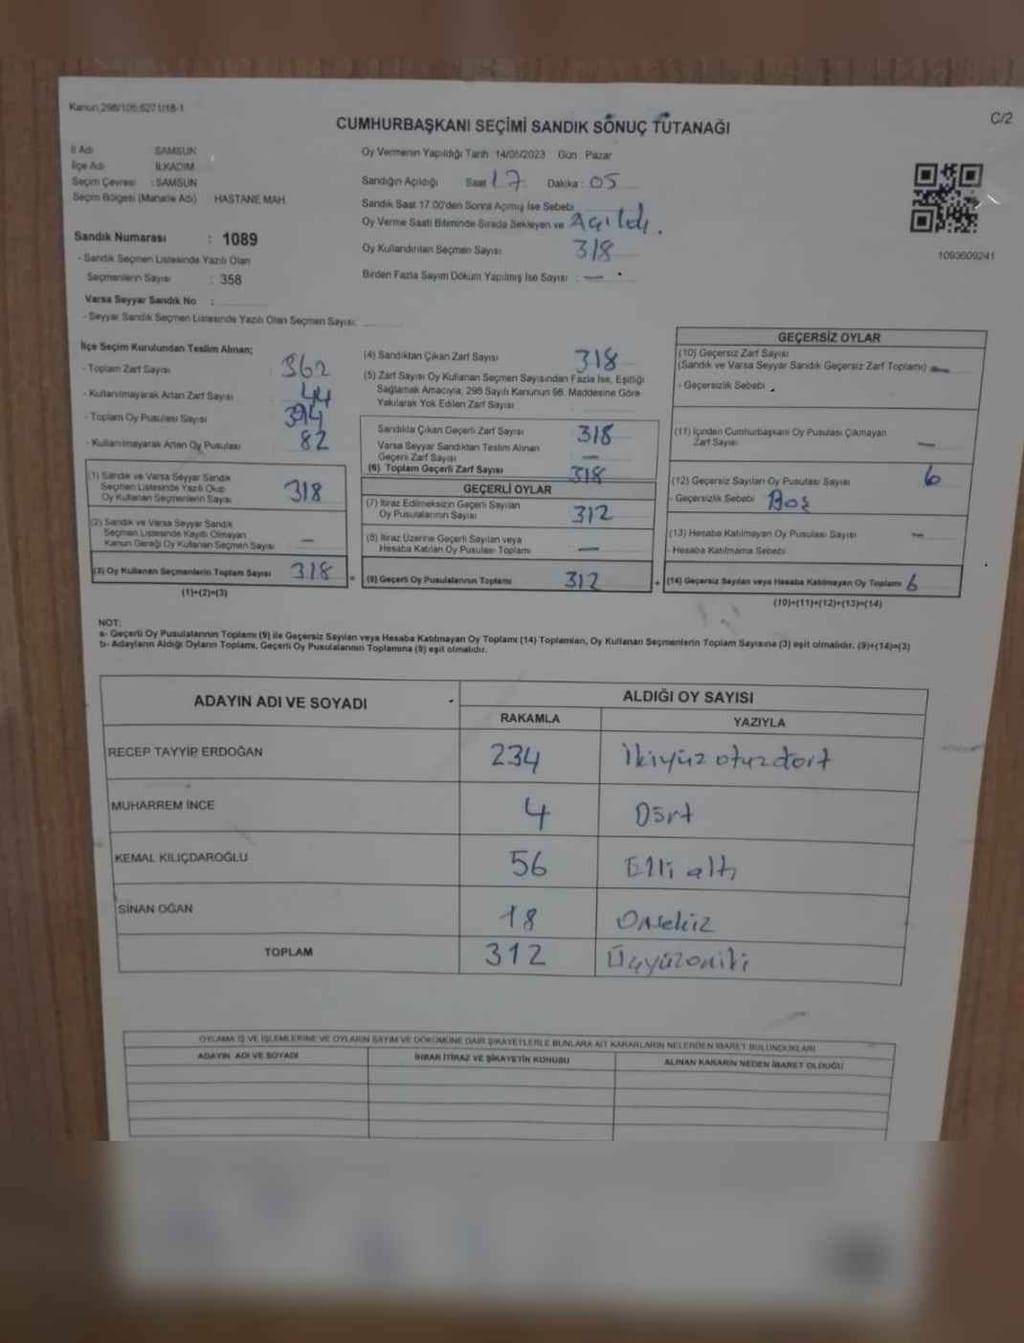 Kanun 298/105 6271/18-1
C/2
CUMHURBAŞKANI SEÇİMİ SANDIK SONUÇ TUTANAĞI
İl Adı SAMSUN
İlçe Adı İLKADIM
Seçim Çevresi : SAMSUN
Seçim Bölgesi (Mahalle Adı) HASTANE MAH.
Sandık Numarası : 1089
- Sandık Seçmen Listesinde Yazılı Olan
Seçmenlerin Sayısı : 358
Varsa Seyyar Sandık No :
- Seyyar Sandık Seçmen Listesinde Yazılı Olan Seçmen Sayısı:
Oy Vermenin Yapıldığı Tarih 14/05/2023 Gün Pazar
Sandığın Açıldığı Saat 17 Dakika : 05
Sandık Saat 17.00'den Sonra Açılmış İse Sebebi
Oy Verme Saati Bitiminde Sırada Bekleyen ve Açıldı.
Oy Kullandırılan Seçmen Sayısı 318
Birden Fazla Sayım Döküm Yapılmış İse Sayısı : —
1093609241
İlçe Seçim Kurulundan Teslim Alınan;
- Toplam Zarf Sayısı 362
- Kullanılmayarak Artan Zarf Sayısı 44
- Toplam Oy Pusulası Sayısı 394
- Kullanılmayarak Artan Oy Pusulası 82
(1) Sandık ve Varsa Seyyar Sandık
Seçmen Listesinde Yazılı Olup
Oy Kullanan Seçmenlerin Sayısı 318
(2) Sandık ve Varsa Seyyar Sandık
Seçmen Listesinde Kayıtlı Olmayan
Kanun Gereği Oy Kullanan Seçmen Sayısı —
(3) Oy Kullanan Seçmenlerin Toplam Sayısı 318
(1)+(2)=(3)
(4) Sandıktan Çıkan Zarf Sayısı 318
(5) Zarf Sayısı Oy Kullanan Seçmen Sayısından Fazla İse, Eşitliği
Sağlamak Amacıyla, 298 Sayılı Kanunun 98. Maddesine Göre
Yakılarak Yok Edilen Zarf Sayısı
Sandıkta Çıkan Geçerli Zarf Sayısı 318
Varsa Seyyar Sandıktan Teslim Alınan
Geçerli Zarf Sayısı —
(6) Toplam Geçerli Zarf Sayısı 318
GEÇERLİ OYLAR
(7) İtiraz Edilmeksizin Geçerli Sayılan
Oy Pusulalarının Sayısı 312
(8) İtiraz Üzerine Geçerli Sayılan veya
Hesaba Katılan Oy Pusulası Toplamı —
(9) Geçerli Oy Pusulalarının Toplamı 312
GEÇERSİZ OYLAR
(10) Geçersiz Zarf Sayısı
(Sandık ve Varsa Seyyar Sandık Geçersiz Zarf Toplamı) —
- Geçersizlik Sebebi
(11) İçinden Cumhurbaşkanı Oy Pusulası Çıkmayan
Zarf Sayısı —
(12) Geçersiz Sayılan Oy Pusulası Sayısı 6
- Geçersizlik Sebebi Boş
(13) Hesaba Katılmayan Oy Pusulası Sayısı —
- Hesaba Katılmama Sebebi
(14) Geçersiz Sayılan veya Hesaba Katılmayan Oy Toplamı 6
(10)+(11)+(12)+(13)=(14)
NOT:
a- Geçerli Oy Pusulalarının Toplamı (9) ile Geçersiz Sayılan veya Hesaba Katılmayan Oy Toplamı (14) Toplamları, Oy Kullanan Seçmenlerin Toplam Sayısına (3) eşit olmalıdır. (9)+(14)=(3)
b- Adayların Aldığı Oyların Toplamı, Geçerli Oy Pusulalarının Toplamına (9) eşit olmalıdır.
ADAYIN ADI VE SOYADI ALDIĞI OY SAYISI
RAKAMLA YAZIYLA
RECEP TAYYİP ERDOĞAN 234 İkiyüz otuzdört
MUHARREM İNCE 4 Dört
KEMAL KILIÇDAROĞLU 56 Elli altı
SİNAN OĞAN 18 Onsekiz
TOPLAM 312 Üçyüzoniki
OYLAMA İŞ VE İŞLEMLERİNE VE OYLARIN SAYIM VE DÖKÜMÜNE DAİR ŞİKAYETLERLE BUNLARA AİT KARARLARIN NELERDEN İBARET BULUNDUKLARI
ADAYIN ADI VE SOYADI İHBAR İTİRAZ VE ŞİKAYETİN KONUSU ALINAN KARARIN NEDEN İBARET OLDUĞU